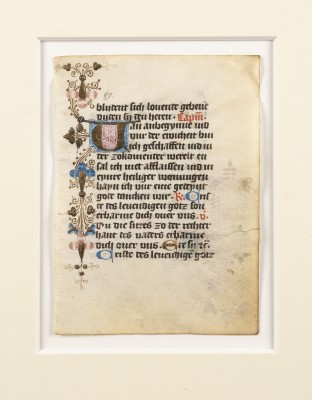 blutent sich lonente gebene
duten sy den herrn. Capitl.
Van anbegynne und
vur der ewicheit bin
ich geschaffen und in
der zokomender werelt en
sal ich niet afflaissen und in
eynre heiliger wonungen
hayn ich vur eme gedeynt
got dancken wir. R. Crist
e des levendigen gotz son
erbarme dich over uns. V.
Du die sitzes zo der rechter
hant des vaders erbarme
dich over uns. Ere sy. R.
Criste des levendiges gotz